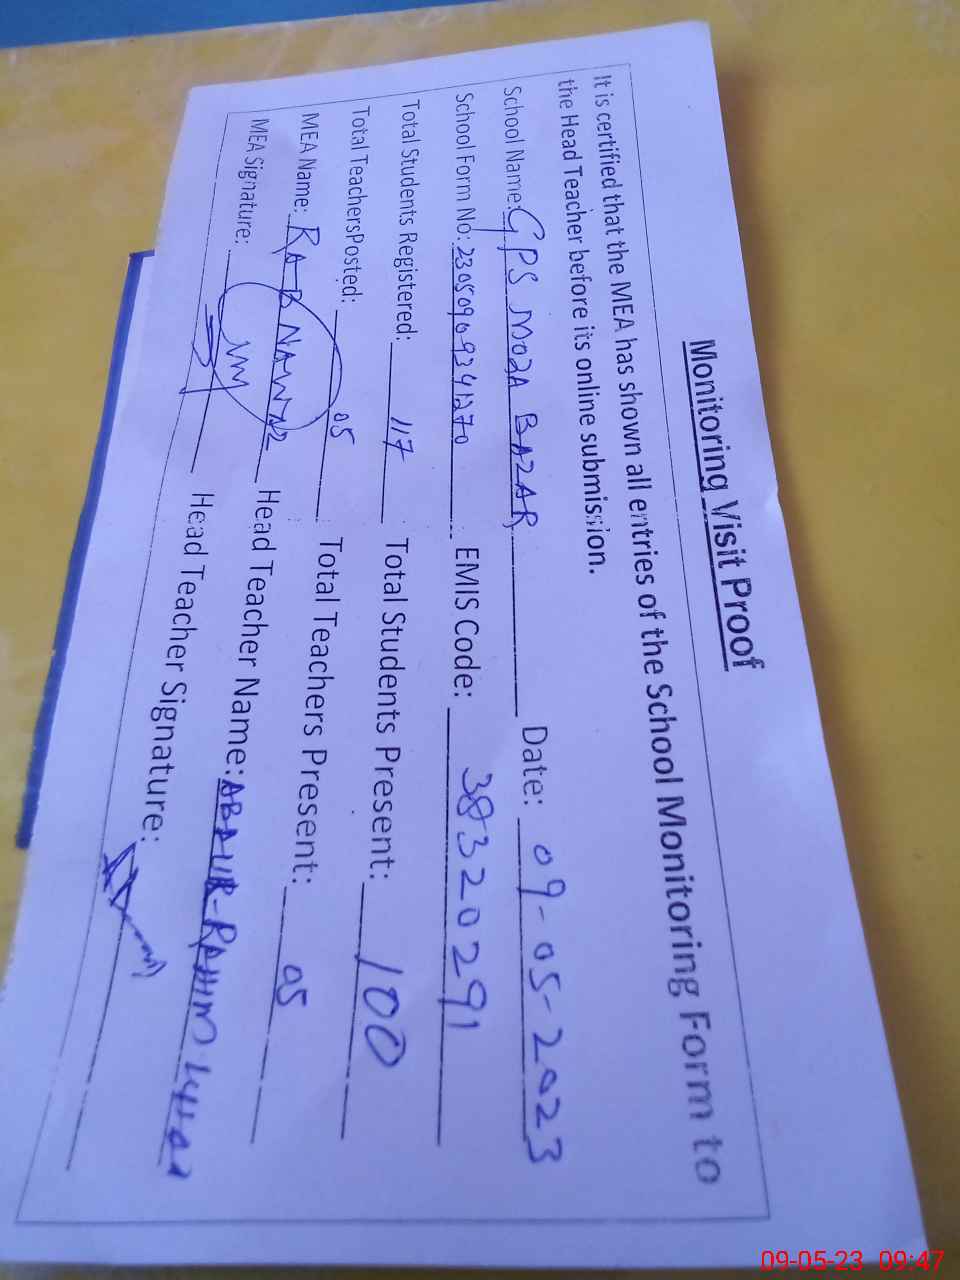 Monitoring Visit Proof
It is certified that the MEA has shown all entries of the School Monitoring Form to
the Head Teacher before its online submission.
School Name: GPS MOZA BAZAR Date: 09-05-2023
School Form No: 23050909341270 EMIS Code: 38320291
Total Students Registered: 117 Total Students Present: 100
Total TeachersPosted: 05 Total Teachers Present: 05
MEA Name: RAB NAWAZ Head Teacher Name: ABDUR-RAHIM
MEA Signature: Head Teacher Signature:
09-05-23 09:47